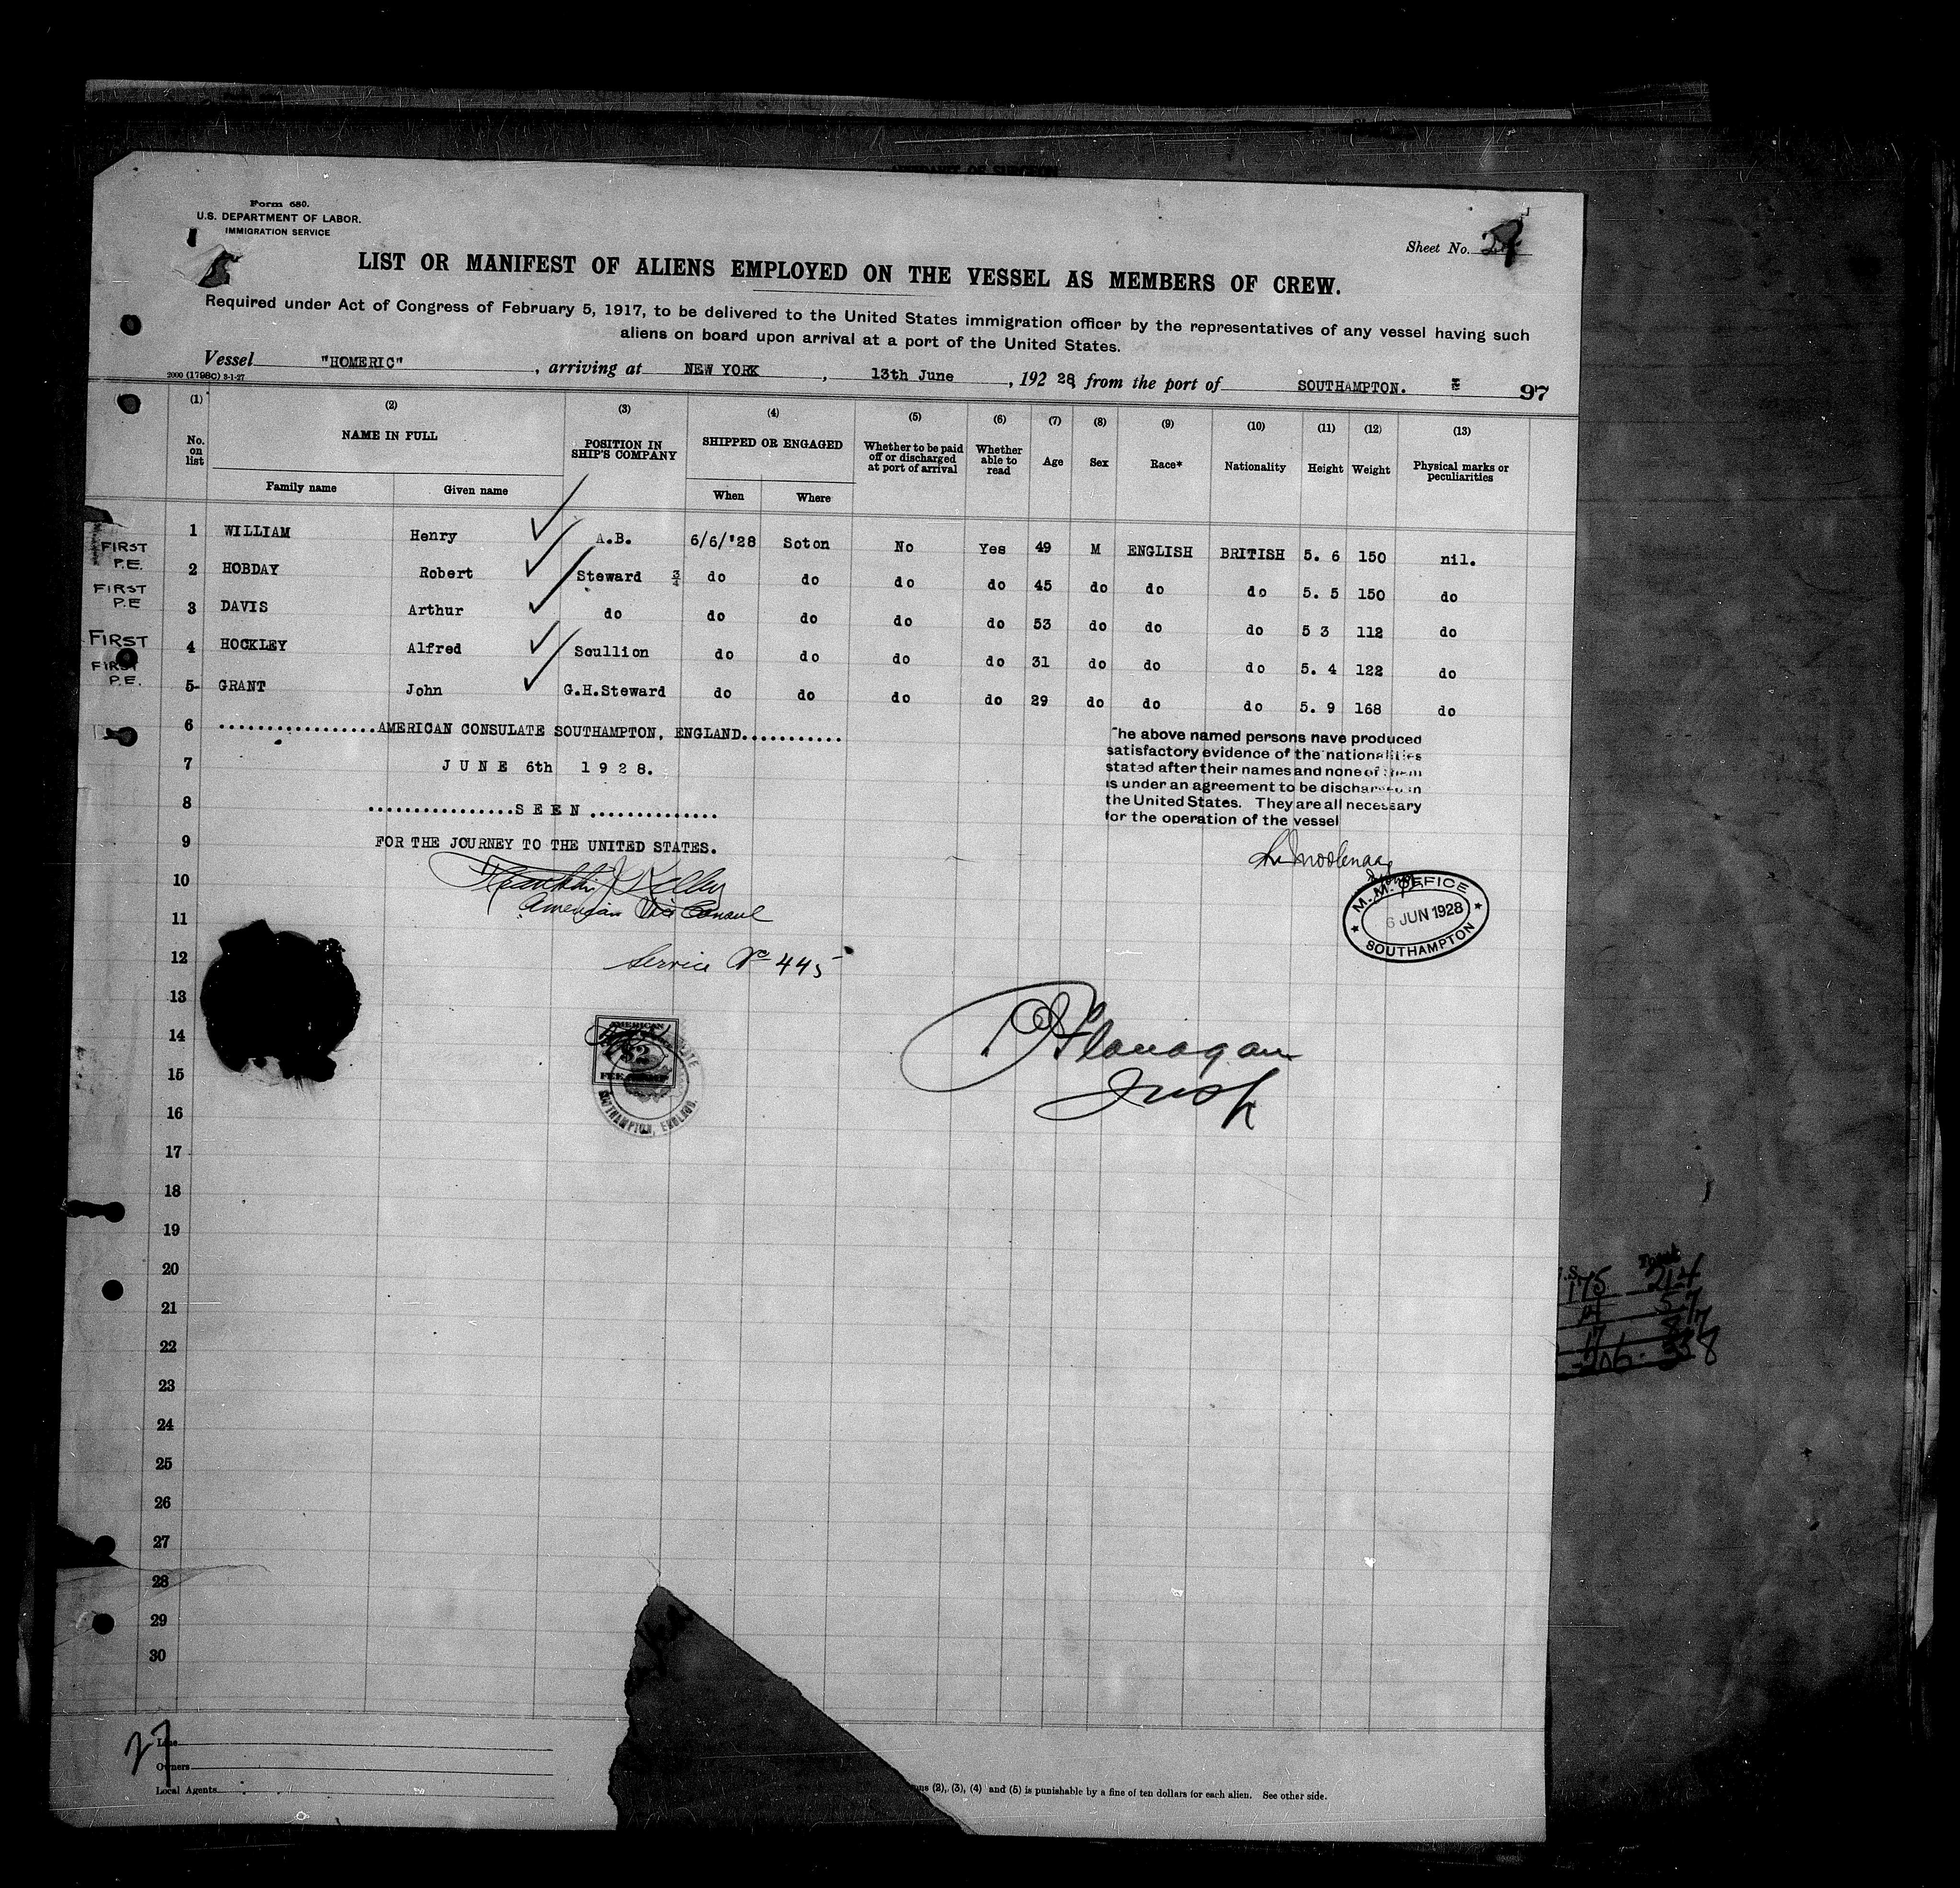 Form 680.
U.S. DEPARTMENT OF LABOR.
IMMIGRATION SERVICE
Sheet No.
LIST OR MANIFEST OF ALIENS EMPLOYED ON THE VESSEL AS MEMBERS OF CREW.
Required under Act of Congress of February 5, 1917, to be delivered to the United States immigration officer by the representatives of any vessel having such
aliens on board upon arrival at a port of the United States.
Vessel "HOMERIC", arriving at NEW YORK, 13th June, 192 28, from the port of SOUTHAMPTON. 97
2000 (1798C) 3-1-27
(1) (2) (3) (4) (5) (6) (7) (8) (9) (10) (11) (12) (13)
No. on list NAME IN FULL POSITION IN SHIP'S COMPANY SHIPPED OR ENGAGED Whether to be paid off or discharged at port of arrival Whether able to read Age Sex Race* Nationality Height Weight Physical marks or peculiarities
Family name Given name When Where
1 WILLIAM Henry A.B. 6/6/'28 Soton No Yes 49 M ENGLISH BRITISH 5. 6 150 nil.
FIRST P.E.
2 HOBDAY Robert Steward 3/4 do do do do 45 do do do 5. 5 150 do
FIRST P.E
3 DAVIS Arthur do do do do do 53 do do do 5 3 112 do
FIRST
4 HOCKLEY Alfred Scullion do do do do 31 do do do 5. 4 122 do
FIRST P.E.
5 GRANT John G.H.Steward do do do do 29 do do do 5. 9 168 do
6 ................AMERICAN CONSULATE SOUTHAMPTON, ENGLAND...........
7 JUNE 6th 1928.
8 ................SEEN..............
9 FOR THE JOURNEY TO THE UNITED STATES.
he above named persons have produced
satisfactory evidence of the nationalities
stated after their names and none of them
is under an agreement to be discharged in
the United States. They are all necessary
for the operation of the vessel
10 Franklin J Kelley
11 American Vice Consul
M.M. OFFICE
6 JUN 1928
SOUTHAMPTON
12 Service No 445
13
14
AMERICAN
$2
FEE STAMP
SOUTHAMPTON, ENGLAND.
Flanagan
Insp
15
16
17
18
19
20
21
22
23
24
25
26
27
28
29
30
175 214
14 57
17
206 338
27
Line
Owners
Local Agents
(2), (3), (4) and (5) is punishable by a fine of ten dollars for each alien. See other side.